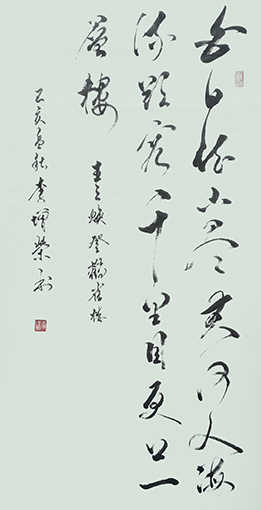 白日依山尽黄河入海
流欲穷千里目更上一
層樓
王之涣登鹳雀楼
亥秋李增榮书